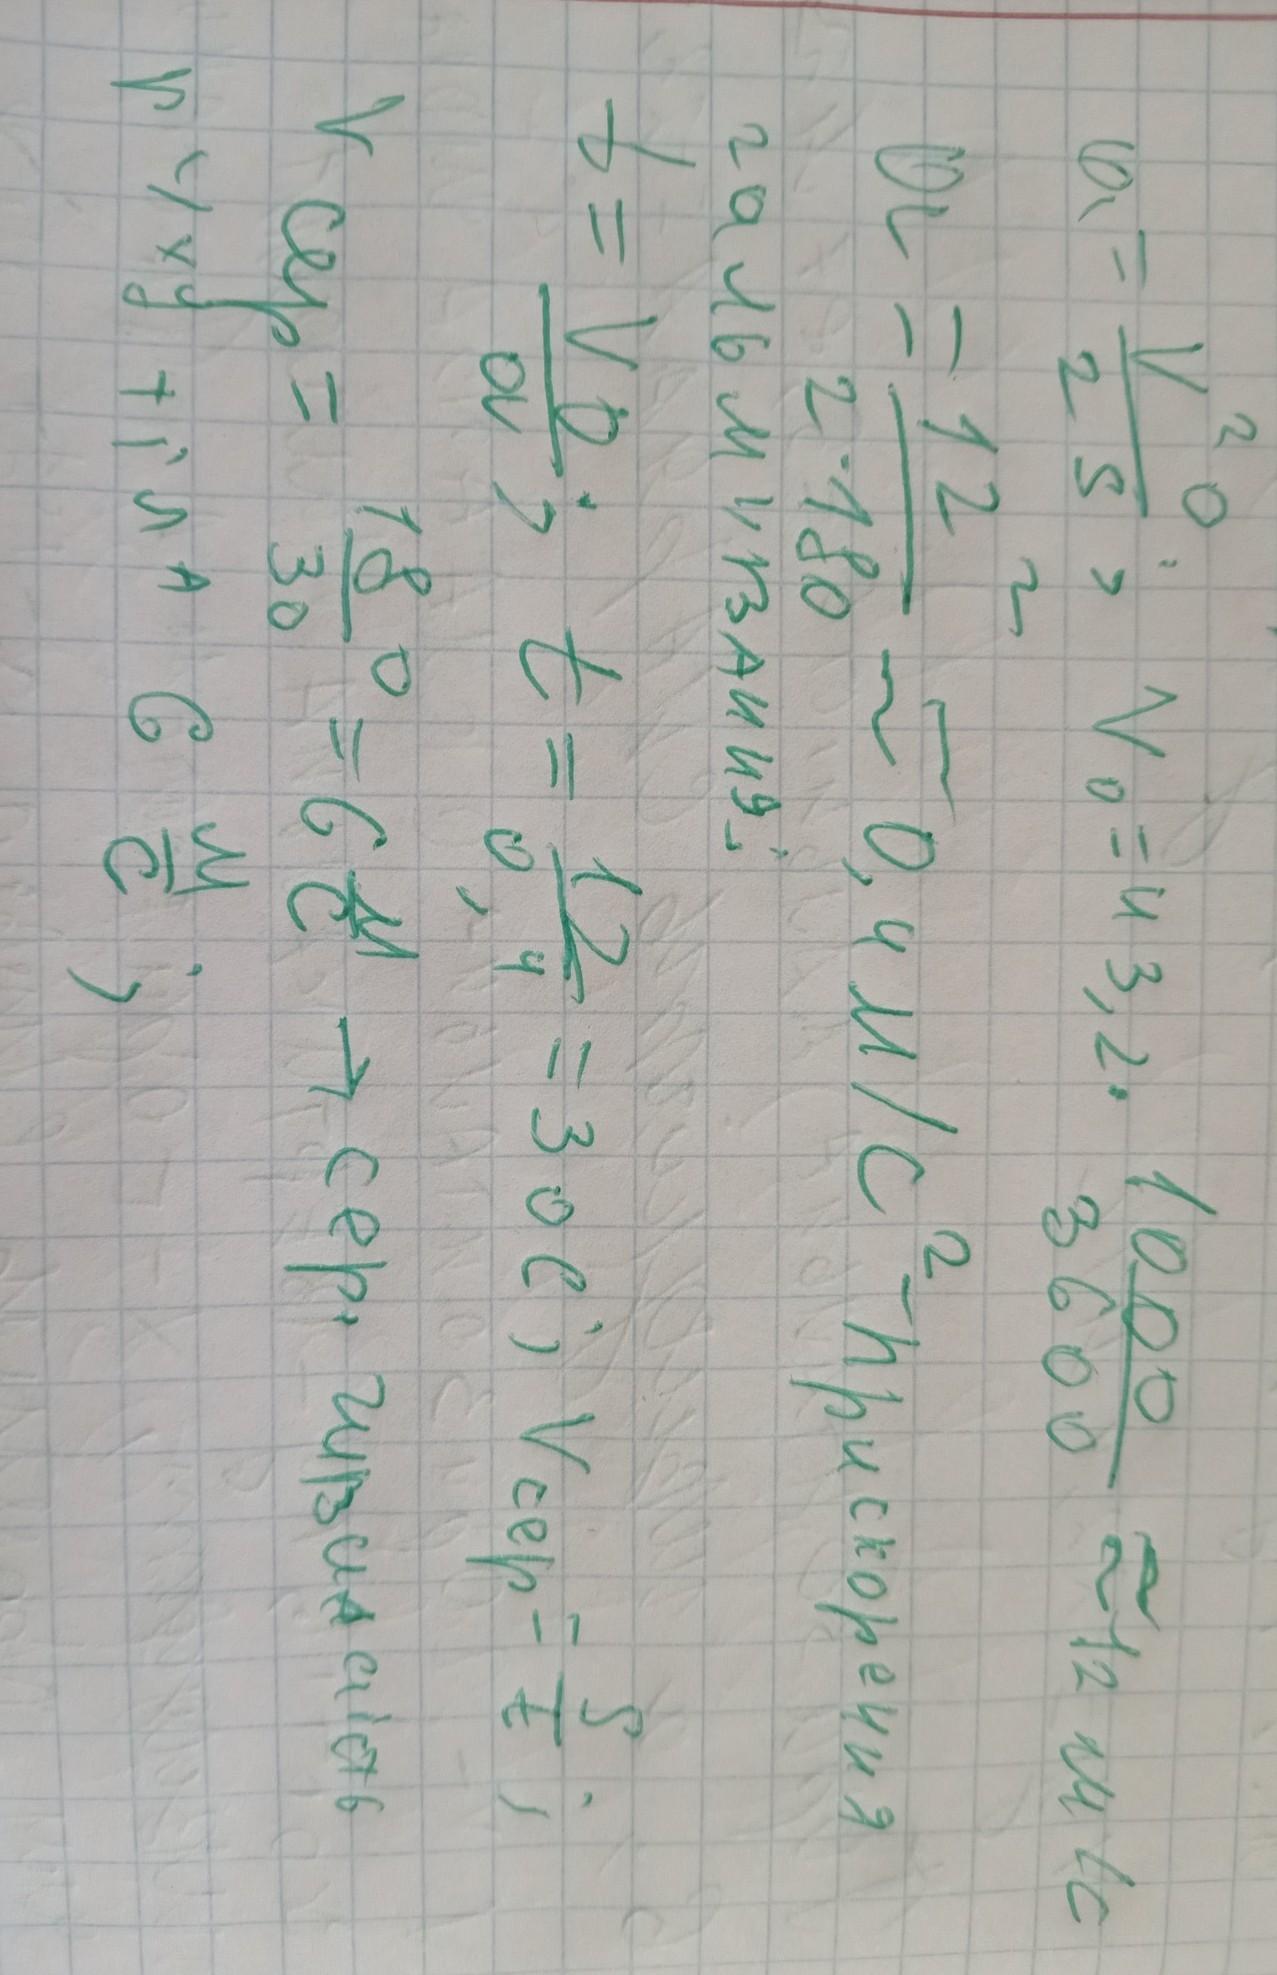 a = V²₀ / 2S ; V₀ = 43,2 · 1000 / 3600 ≈ 12 м/с
a = 12² / 2·180 ≈ 0,4 м/с² - прискорення
гальмування;
t = V₀ / a ; t = 12 / 0,4 = 30 с; Vсер = S / t ;
V сер = 180 / 30 = 6 м/с → сер.
руху тіла 6 м/с ;